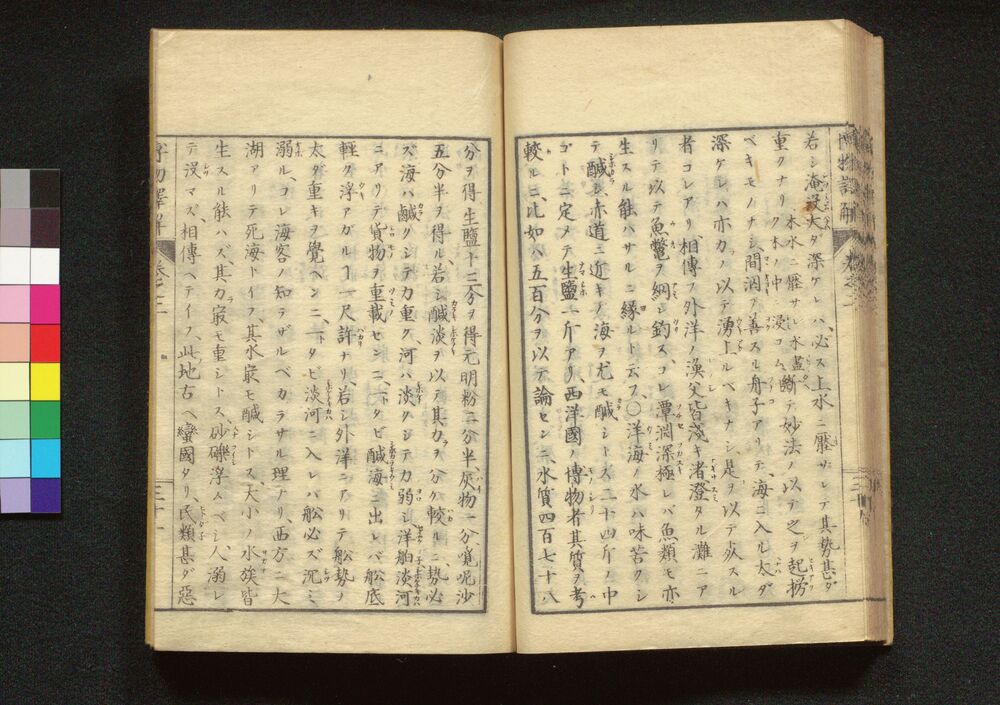 若シ淹没大ダ深ケレハ、必ス上水ニ壓サレテ其勢甚ダ
重クナリ、ク木ノ中ニ浸コム、斷テ妙法ノ以テ之ヲ起撈
木水ニ壓サレ水盡ク
ベキモノナシ、間泅ヲ善スル舟子アリテ、海ニ入ル太ダ
深ケレハ亦力ノ以テ湧上ルベキナシ、是ヲ以テ
者コレアリ、相傳フ外洋ノ漁父皆淺キ渚澄タル灘ニア
リテ以テ魚鼈ヲ網シ釣ス、コレ潭淵深極レバ魚類モ亦
生スル能ハサルニ縁ルト云フ、〇洋海ノ水ハ味苦クシ
テ鹹シ、赤道ニ近キノ海ヲ尤モ鹹シトス、二十四斤ノ中
ゴトニ定メテ生鹽一斤アリ、西洋國ノ博物者其質ヲ考
較ルニ、比如ハ五百分ヲ以テ論センニ、水質四百七十八
分ヲ得、生鹽十三分ヲ得、元明粉二分半、灰物一分、寛呢沙
五分半ヲ得ル、若シ鹹淡ヲ以テ其力ヲ分ケ較ルニ、勢必
ズ海ハ鹹クシテ力重ク、河ハ淡クシテ力弱シ、洋舶淡河
ニアリテ貨物ヲ重載センニ、一タビ鹹海ニ出レバ船底
輕ク浮アガルヿ一尺許ナリ、若シ外洋ニアリテ船勢ヲ
太ダ重キヲ覺ヘンニ、一タビ淡河ニ入レバ船必ズ沉ミ
溺ル、コレ海客ノ知ラザルベカラサル理ナリ、西方ニ大
湖アリテ死海トイフ、其水㝡モ鹹シトス、大小ノ水族皆
生スル能ハズ、其力㝡モ重シトス、砂礫浮ベシ、人溺レ
テ没マズ、相傳ヘテイフ、此地古ヘ蠻國タリ、民類甚ダ惡